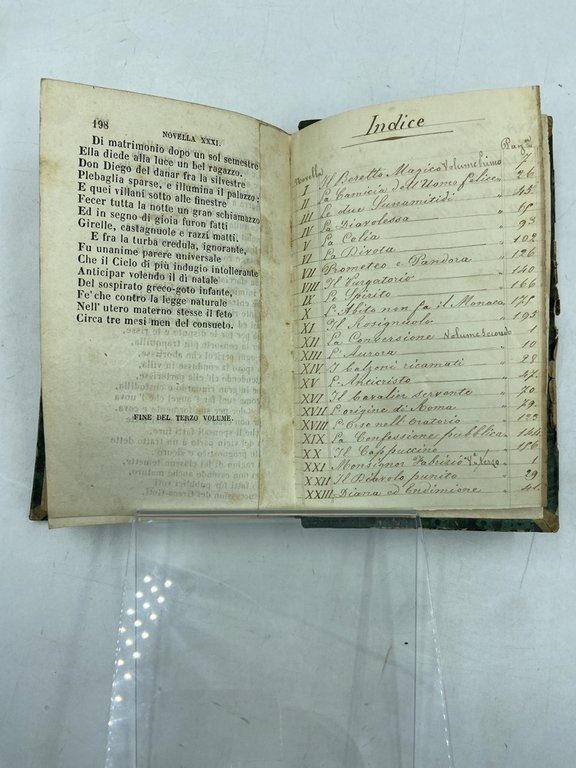 198
NOVELLA XXXI.
Di matrimonio dopo un sol semestre
Ella diede alla luce un bel ragazzo.
Don Diego del danar fra la silvestre
Plebaglia sparse, e illumina il palazzo:
E quei villani sotto alle finestre
Fecer tutta la notte un gran schiamazzo
Ed in segno di gioia furon fatti
Girelle, castagnuole e razzi matti.
E fra la turba credula, ignorante,
Fu unanime parere universale
Che il Ciclo di più indugio intollerante
Anticipar volendo il dì natale
Del sospirato greco-goto infante,
Fe' che contro la legge naturale
Nell' utero materno stesse il feto
Circa tre mesi men del consueto.
FINE DEL TERZO VOLUME.
Indice
Novella Pag.
I Il Beretto Magico Volume Primo 7
II La Camicia dell'Uomo felice " 26
III Le due Sunamitidi " 45
IV La Diavolessa " 65
V La Celia " 93
VI La Divota " 102
VII Prometeo e Pandora " 126
VIII Il Purgatorio " 140
IX Lo Spirito " 166
X L'Abito non fa il Monaco " 175
XI Il Rosignolo " 195
XII La Conversione Volume Secondo 1
XIII L'Aurora " 10
XIV I Calzoni ricamati " 28
XV L'Anticristo " 47
XVI Il Cavalier servente " 70
XVII L'origine di Roma " 79
XVIII L'Orso nell'Oratorio " 123
XIX La Confessione pubblica " 144
XX Il Cappuccino " 156
XXI Monsignor Fabrizio V. Terzo " 1
XXII Il Diavolo punito " 29
XXIII Diana ed Endimione " 41